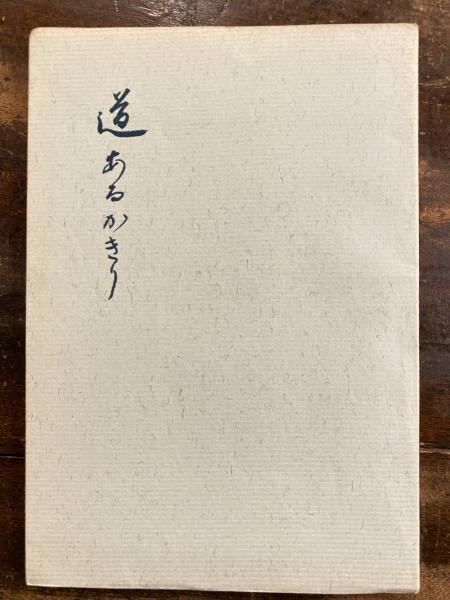 道あるかきり